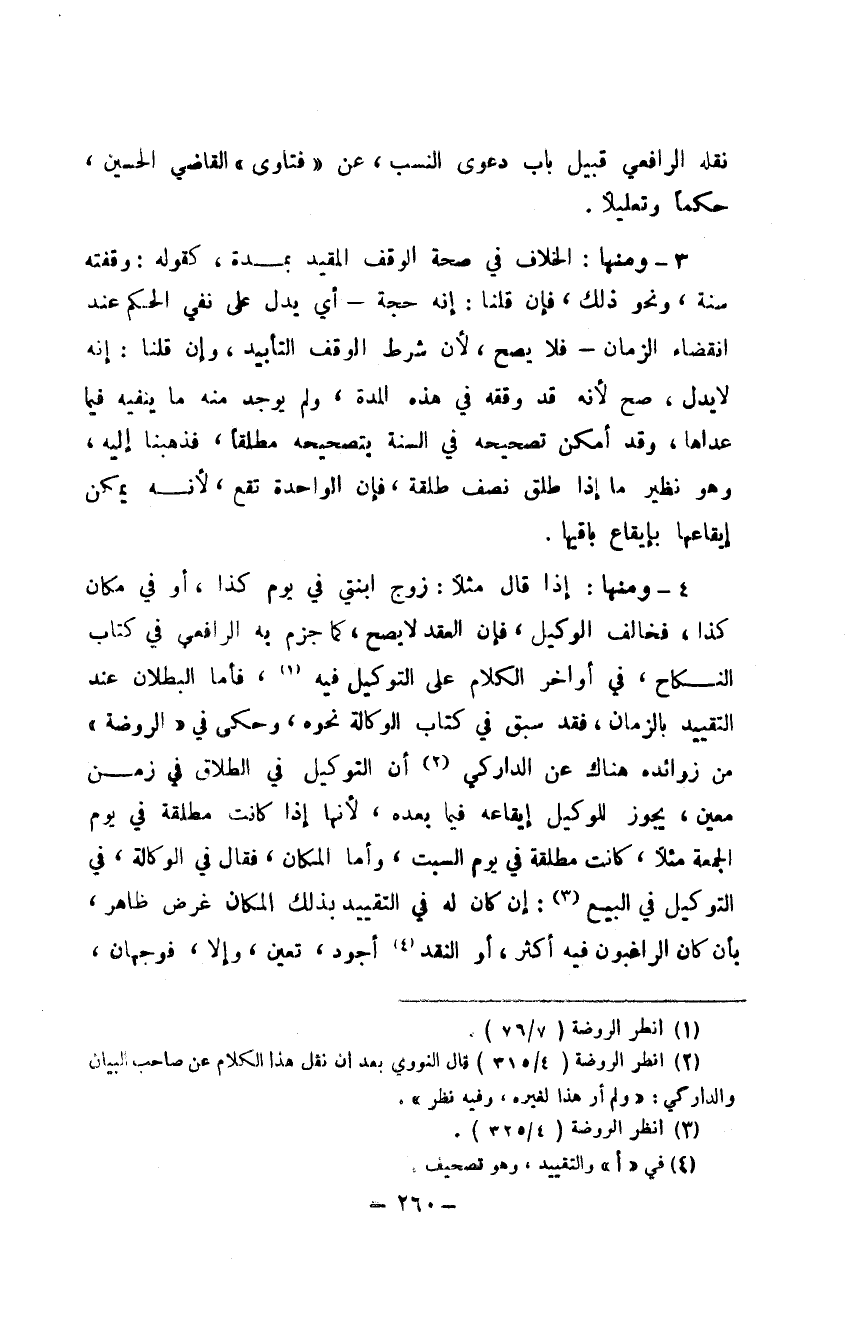 نقله الرافعي قبيل باب دعوى النسب ، عن « فتاوى » القاضي الحسين ،
حكماً وتعليلاً .
٣ – ومنها : الخلاف في صحة الوقف المقيد بمـــدة ، كقوله : وقفته
سنة ، ونحو ذلك ، فإن قلنا : إنه حجة – أي يدل على نفي الحكم عند
انقضاء الزمان – فلا يصح ، لأن شرط الوقف التأبيد ، وإن قلنا : إنه
لايدل ، صح لأنه قد وقفه في هذه المدة ، ولم يوجد منه ما ينفيه فيما
عداها ، وقد أمكن تصحيحه في السنة بتصحيحه مطلقاً ، فذهبنا إليه ،
وهو نظير ما إذا طلق نصف طلقة ، فإن الواحدة تقع ، لأنـــه يمكن
إيقاعها بإيقاع باقيها .
٤ – ومنها : إذا قال مثلاً : زوج ابنتي في يوم كذا ، أو في مكان
كذا ، فخالف الوكيل ، فإن العقد لايصح ، كما جزم به الرافعي في كتاب
النـــكاح ، في أواخر الكلام على التوكيل فيه (١) ، فأما البطلان عند
التقييد بالزمان ، فقد سبق في كتاب الوكالة نحوه ، وحكى في « الروضة »
من زوائده هناك عن الداركي (٢) أن التوكيل في الطلاق في زمـــن
معين ، يجوز للوكيل إيقاعه فيما بعده ، لأنها إذا كانت مطلقة في يوم
الجمعة مثلاً ، كانت مطلقة في يوم السبت ، وأما المكان ، فقال في الوكالة ، في
التوكيل في البيع (٣) : إن كان له في التقييد بذلك المكان غرض ظاهر ،
بأن كان الراغبون فيه أكثر ، أو النقد (٤) أجود ، تعين ، وإلا ، فوجهان ،
(١) انظر الروضة ( ٧٦/٧ ) .
(٢) انظر الروضة ( ٣١٥/٤ ) قال النووي بعد ان نقل هذا الكلام عن صاحب البيان
والداركي : « ولم أر هذا لغيره ، وفيه نظر » .
(٣) انظر الروضة ( ٣٢٥/٤ ) .
(٤) في « أ » والتقييد ، وهو تصحيف .
– ٢٦٠ –